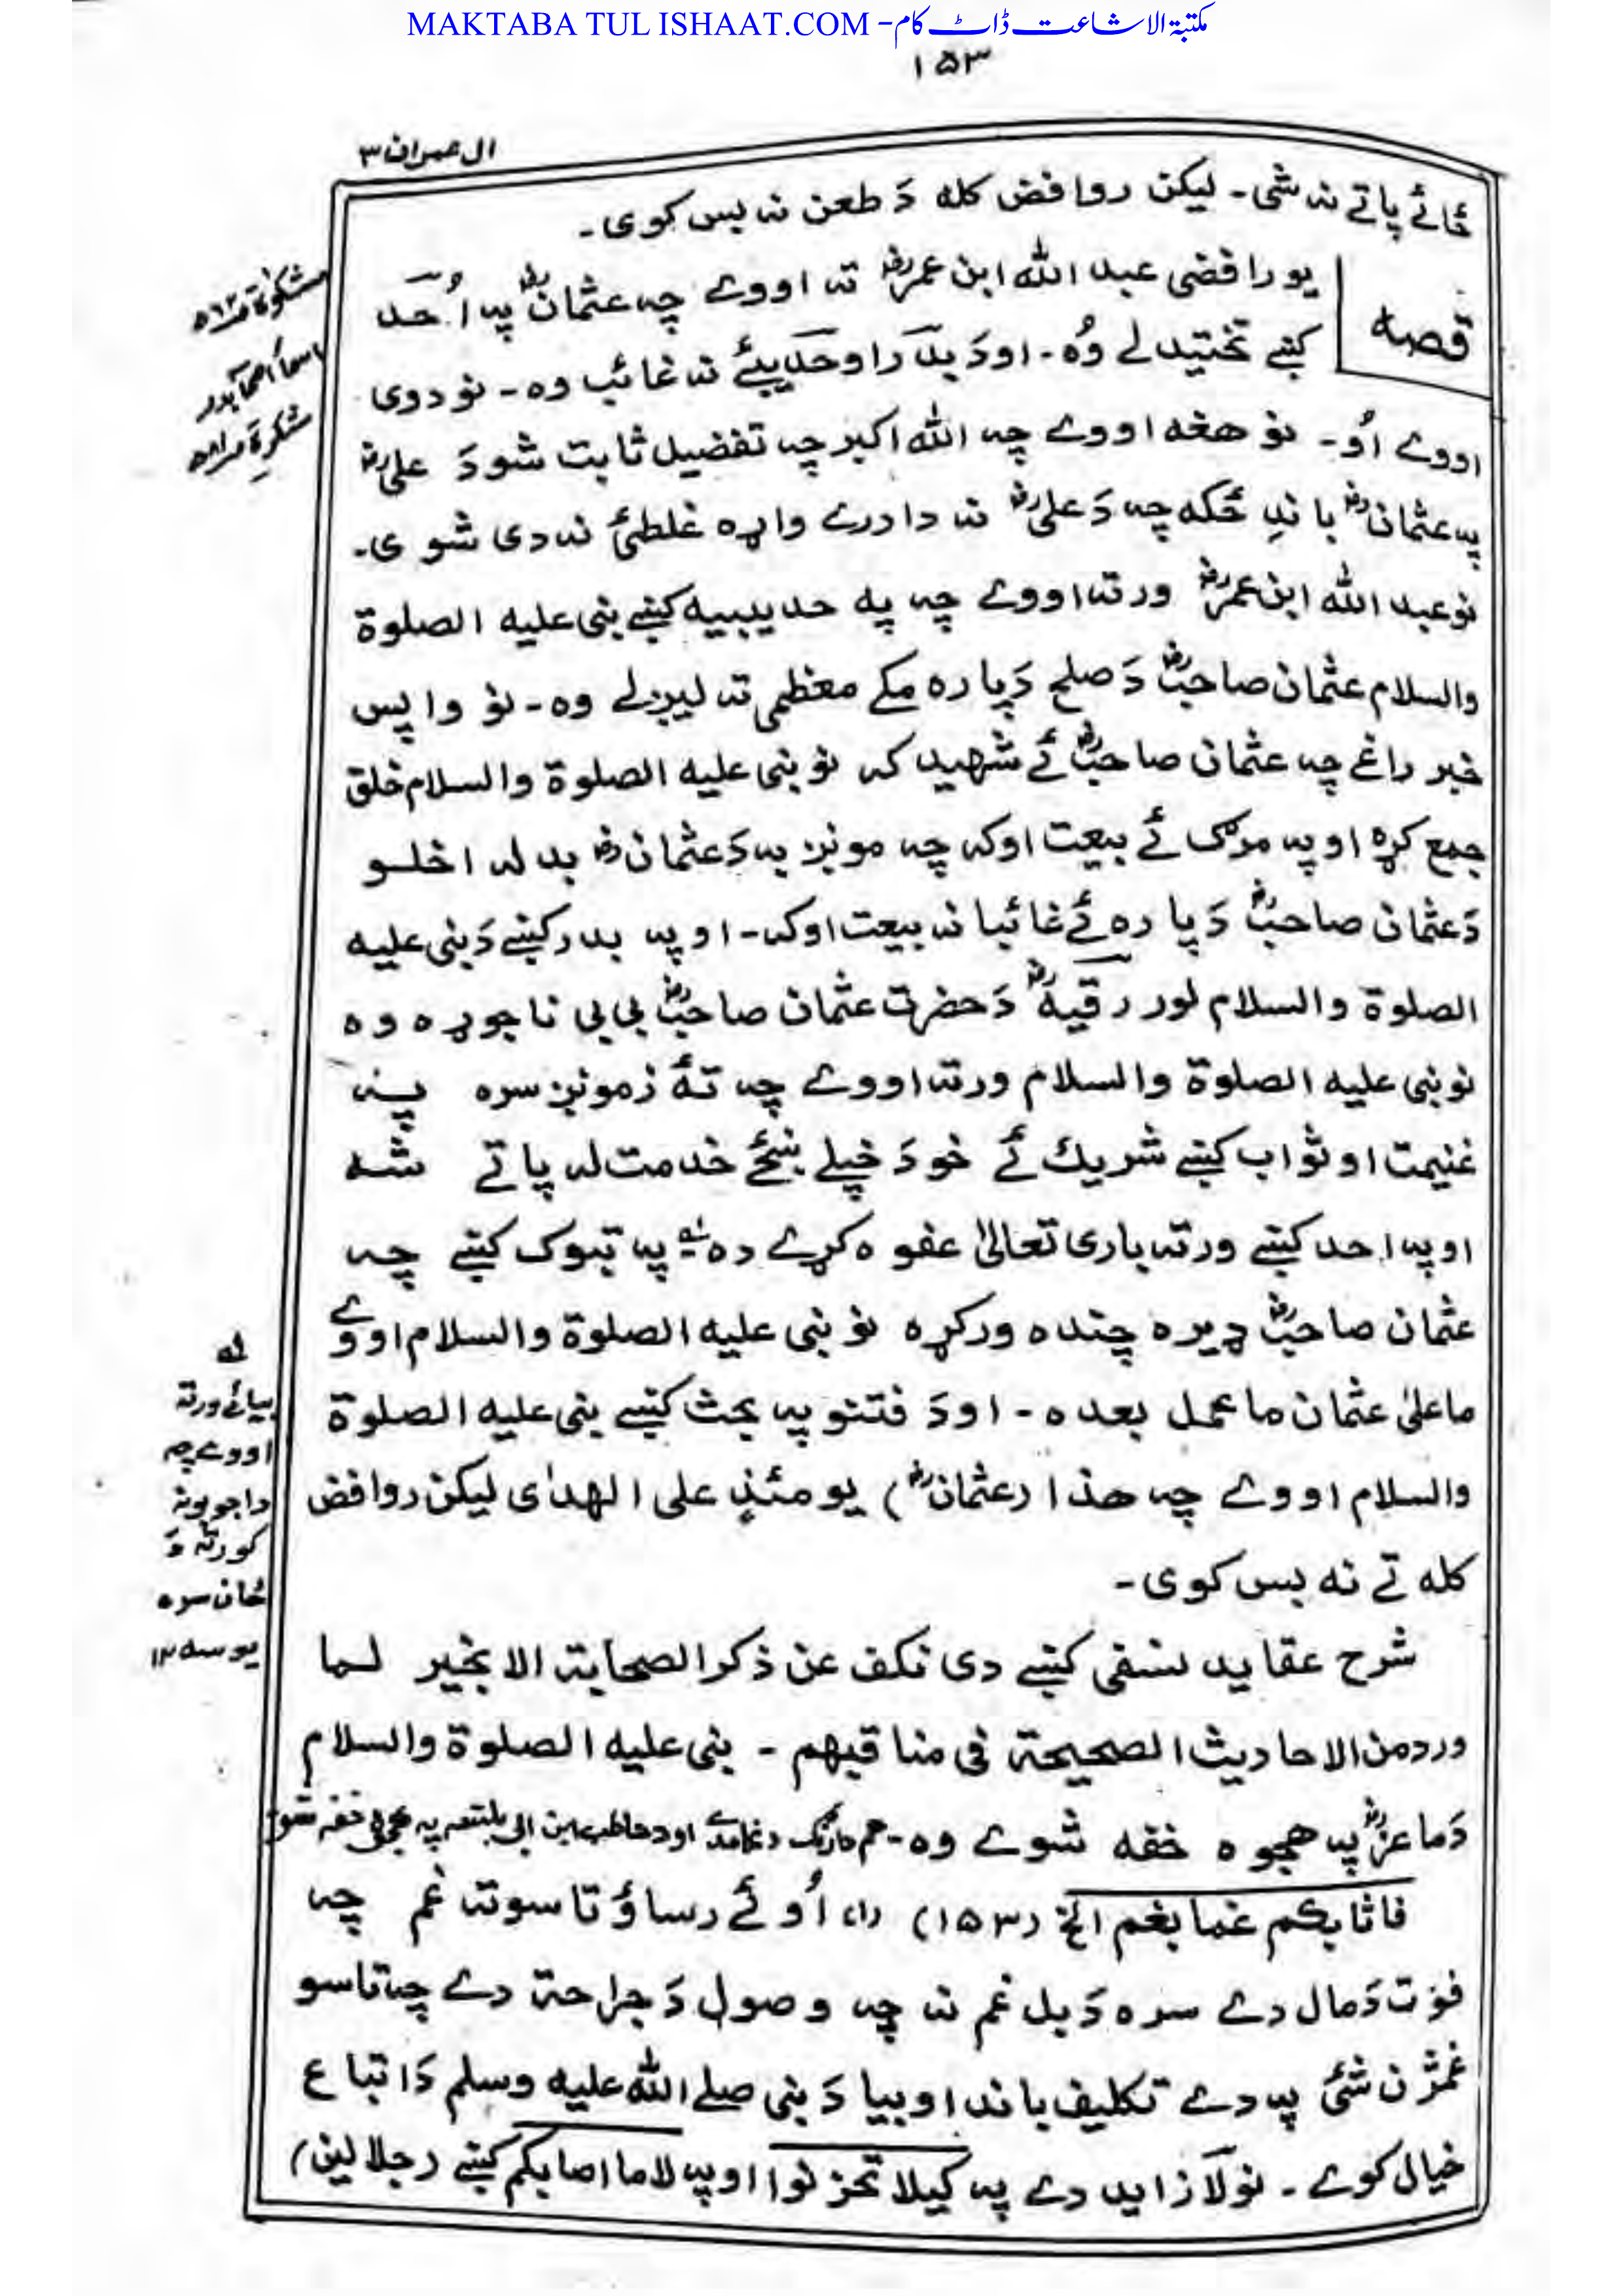 MAKTABA TUL ISHAAT.COM - مکتبۃ الاشاعت ڈاٹ کام
۱۵۳
ال عمران ۳
ځائے پاتے نہ شی۔ لیکن روافض کله دَ طعن نہ بس کوی۔
قصه
یو رافضی عبد الله ابن عمرؓ تہ اووے چہ عثمانؓ پہ اُحد
کښے تختیدلے وُہ۔ اودَ بدر اوحدیبیئے نہ غائب وہ۔ نو دوی
اووے اُو۔ نو هغه اووے چہ الله اکبر چہ تفضیل ثابت شو دَ علیؓ
پہ عثمانؓ باندِ ځکه چہ دَ علیؓ نہ دا درے واړہ غلطئ نہ دی شوی۔
نو عبد الله ابن عمرؓ ورتہ اووے چہ په حدیبیه کښے نبی علیه الصلوة
والسلام عثمان صاحبؓ دَ صلح دَ پارہ مکے معظمی تہ لیږلے وہ۔ نو واپس
خبر راغے چہ عثمان صاحبؓ ئے شهید کہ نو نبی علیه الصلوة والسلام خلق
جمع کړہ او پہ مرګی ئے بیعت اوکہ چہ مونږ بہ دَ عثمانؓ بدلہ اخلو
دَ عثمان صاحبؓ دَ پارہ ئے غائبانہ بیعت اوکہ۔ او پہ بدر کښے دَ نبی علیه
الصلوة والسلام لور رقیهؓ دَ حضرت عثمان صاحبؓ بی بی ناجوړہ وہ
نو نبی علیه الصلوة والسلام ورتہ اووے چہ تۀ زمونږ سرہ پہ
غنیمت او ثواب کښے شریك ئے خو دَ خپلے ښځے خدمت لہ پاتے شہ
او پہ احد کښے ورتہ باری تعالیٰ عفوہ کړے دہ پہ تبوک کښے چہ
عثمان صاحبؓ ډیرہ چندہ ورکړہ نو نبی علیه الصلوة والسلام اووے
ما علیٰ عثمان ما عمل بعدہ۔ اودَ فتنو پہ بحث کښے نبی علیه الصلوة
والسلام اووے چہ هذا (عثمانؓ) یومئذٍ علی الهدٰی لیکن روافض
کله تے نه بس کوی۔
لہ
بیائے ورتہ
اووے چہ
دا جوبونہ
کورتہ دَ
ځان سرہ
یوسه ۱۲
شرح عقاید نسفی کښے دی نکف عن ذکر الصحابة الا بخیر لما
ورد من الاحادیث الصحیحة فی مناقبهم۔ نبی علیه الصلوة والسلام
دَ ماعزؓ پہ هجوہ خفه شوے وہ۔ اود حاطب ابن ابی بلتعہ پہ
فاثابکم غما بغم الخ (۱۵۳) (۱) اُوئے رساؤ تاسو تہ غم چہ
فوت دَ مال دے سرہ دَ بل غم نہ چہ وصول دَ جراحة دے چہ تاسو
غمژن شئ پہ دے تکلیف باند او بیا دَ نبی صلے الله علیه وسلم دَ اتباع
خیال کوے۔ نو لَا زاید دے پہ کیلا تحزنوا او پہ لاما اصابکم کښے (جلالین)